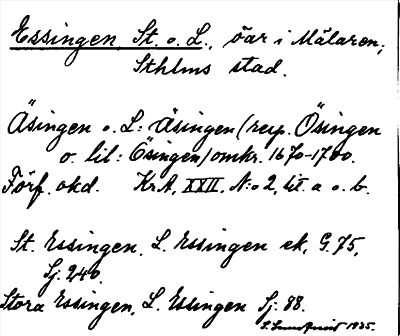 Essingen, St. o. L., öar i Mälaren;
Sthlms stad.
Äsingen o. L: Äsingen (resp. Ösingen
o. lil: Ösingen) omkr. 1670-1700.
Förf. okd. KrA, XXII, N:o 2, lit. a o. b.
St. Essingen, L. Essingen ek, G. 75,
Sj. 240.
Stora Essingen, L. Essingen Sj. 88.
1935.